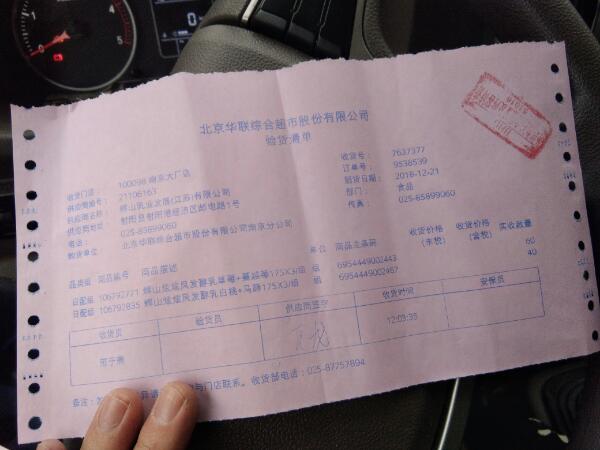 北京华联综合超市股份有限公司
验货清单
收货门店： 100098 南京大厂店
收货号： 7637377
供应商编号： 21106163
订单号： 9538539
供应商名称： 辉山乳业发展(江苏)有限公司
验货日期： 2016-12-21
供应商地址： 射阳县射阳港经济区邮电路1号
部门： 食品
电话： 025-85899060
传真： 025-85899060
购货单位： 北京华联综合超市股份有限公司南京分公司
品类组 商品编号 商品描述 单位 商品主条码 收货价格(未税) 收货价格(含税) 实收数量
日配组 106792771 辉山炫炫风发酵乳草莓+蔓越莓175X3/组 组 6954449002443 60
日配组 106792835 辉山炫炫风发酵乳白桃+马蹄175X3/组 组 6954449002467 40
收货员 验货员 供应商签字 收货时间 安保员
12:03:35
备注： 与门店联系。收货部电话：025-87757894